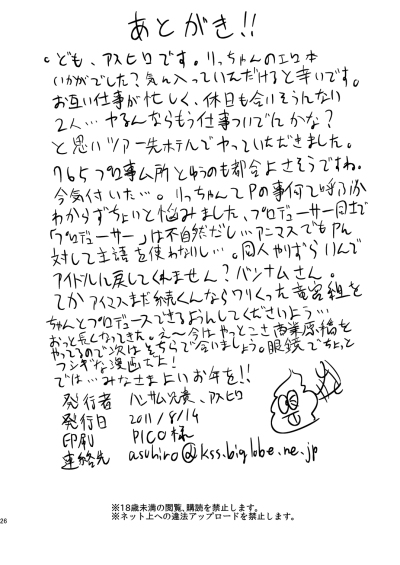 あとがき!!
。ども、アスヒロです。りっちゃんのエロ本
いかがでした?気に入っていただけると幸いです。
お互い仕事が忙しく、休日も会いそうんない
2人…ヤるんならもう仕事ついでんかな?
と思いツアー先ホテルでヤっていただきました。
765プロ事ム所とゆうのも都合よさそうですね。
今気付いた…。りっちゃんてPの事何て呼ぶか
わからずちょいと悩みました、プロデューサー同士で
「プロデューサー」は不自然だし…アニマスでもPに
対して主語を使わないし…。同人やりずらいんで
アイドルに戻してくれません?バンナムさん。
てかアイマスまだ続くんならワリくった竜宮組を
ちゃんとプロデュースできるようんしてくださいよう…
おっと長くなってきた。え〜今はやっとこさ商業原稿を
やってるので次はそちらで会いましょう。眼鏡でちょっと
フシギな漫画だよ!
では…みなさまよいお年を!!
発行者 ハンサム兄貴、アスヒロ
発行日 2011/8/14
印刷 PICO様
連絡先 asuhiro@kss.biglobe.ne.jp
※18歳未満の閲覧、購読を禁止します。
※ネット上への違法アップロードを禁止します。
26